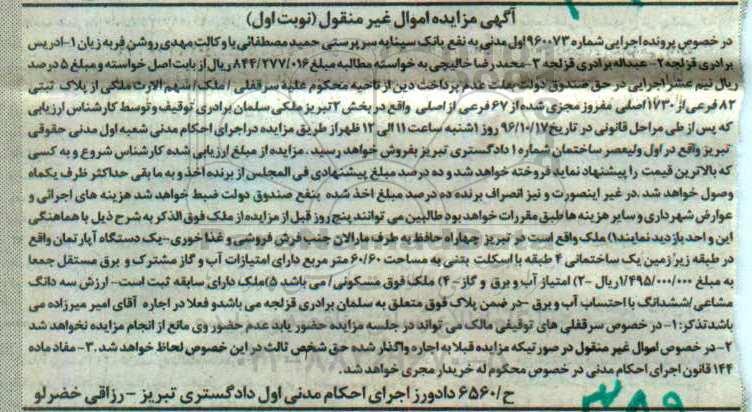 آگهی مزایده اموال غیر منقول (نوبت اول)
در خصوص پرونده اجرایی شماره ۹۶۰۰۷۳ اول مدنی به نفع بانک سینا به سرپرستی حمید مصطفائی با وکالت مهدی روشن فر به زیان ۱-ادریس
برادری قزلجه ۲- عبداله برادری قزلجه ۳-محمدرضا خالیچی به خواسته مطالبه مبلغ ۸۴۴/۲۷۷/۰۱۶ ریال از بابت اصل خواسته و مبلغ ۵ درصد
ریال نیم عشر اجرایی در حق صندوق دولت بعلت عدم پرداخت دین از ناحیه محکوم علیه سرقفلی / ملک/ سهم الارث ملکی از پلاک ثبتی
۸۲ فرعی از ۱۷۳۰ اصلی مفروز مجزی شده از ۶۷ فرعی از اصلی واقع در بخش ۲ تبریز ملکی سلمان برادری توقیف و توسط کارشناس ارزیابی
که پس از طی مراحل قانونی در تاریخ ۹۶/۱۰/۱۷ روز ۱شنبه ساعت ۱۱ الی ۱۲ ظهر از طریق مزایده در اجرای احکام مدنی شعبه اول مدنی حقوقی
تبریز واقع در اول ولیعصر ساختمان شماره ۱ دادگستری تبریز بفروش خواهد رسید . مزایده از مبلغ ارزیابی شده کارشناس شروع و به کسی
که بالاترین قیمت را پیشنهاد نماید فروخته خواهد شد و ده درصد مبلغ پیشنهادی فی المجلس از برنده اخذ و به ما بقی حداکثر ظرف یکماه
وصول خواهد شد .در غیر اینصورت و نیز انصراف برنده ده درصد مبلغ اخذ شده بنفع صندوق دولت ضبط خواهد شد هزینه های اجرائی و
عوارض شهرداری و سایر هزینه ها طبق مقررات خواهد بود طالبین می توانند پنج روز قبل از مزایده از ملک فوق الذکر به شرح ذیل با هماهنگی
این واحد بازدید نمایند۱) ملک واقع است در تبریز چهار راه حافظ به طرف مارالان جنب فرش فروشی و غذاخوری-یک دستگاه آپارتمان واقع
در طبقه زیرزمین یک ساختمانی ۴ طبقه با اسکلت بتنی به مساحت ۶۰/۶۰ متر مربع دارای امتیازات آب و گاز مشترک و برق مستقل جمعا
به مبلغ ۱/۴۹۵/۰۰۰/۰۰۰ریال -۲) امتیاز آب و برق و گاز-۴) ملک فوق مسکونی/ می باشد ۵)ملک دارای سابقه ثبت است- ارزش سه دانگ
مشاعی /ششدانگ با احتساب آب و برق -در ضمن پلاک فوق متعلق به سلمان برادری قزلجه می باشدو فعلا در اجاره آقای امیر میرزاده می
باشدتذکر:۱- در خصوص سرقفلی های توقیفی مالک می تواند در جلسه مزایده حضور یابد عدم حضور وی مانع از انجام مزایده نخواهد شد
۲-در خصوص اموال غیر منقول در صورتیکه مزایده قبلا به اجاره واگذار شده حق شخص ثالث در این خصوص لحاظ خواهد شد .۳- مفاد ماده
۱۴۴ قانون اجرای احکام مدنی در خصوص محکوم له خریدار مجری خواهد شد.
ح/۶۵۶۰ دادورز اجرای احکام مدنی اول دادگستری تبریز - رزاقی خضرلو